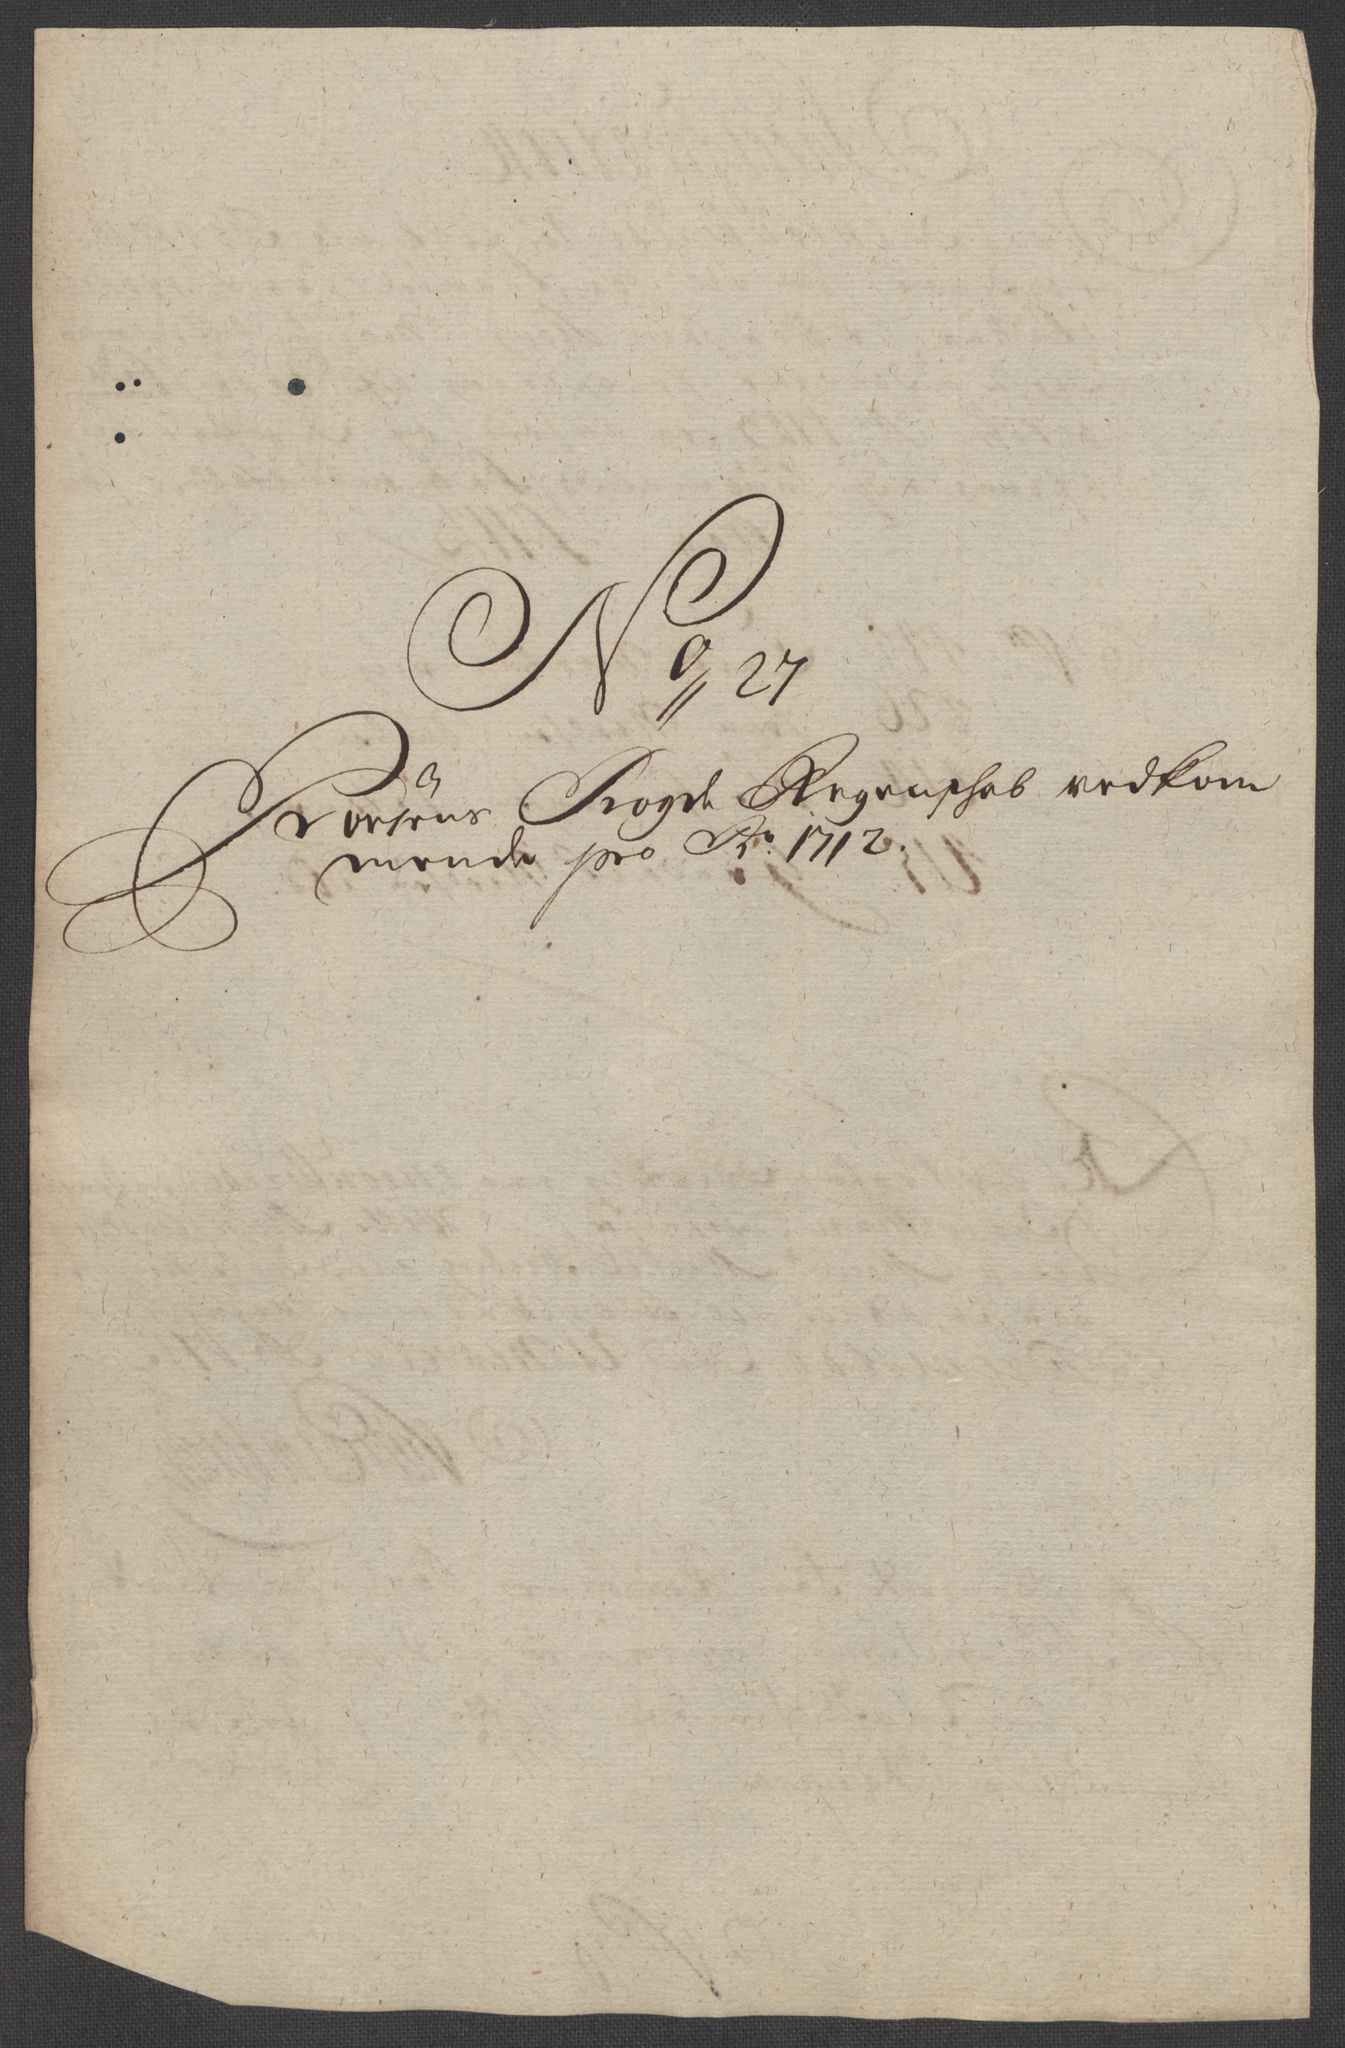 No 27
Foesens Fogde Regenschab vedkom
mende pro Ao. 1712.